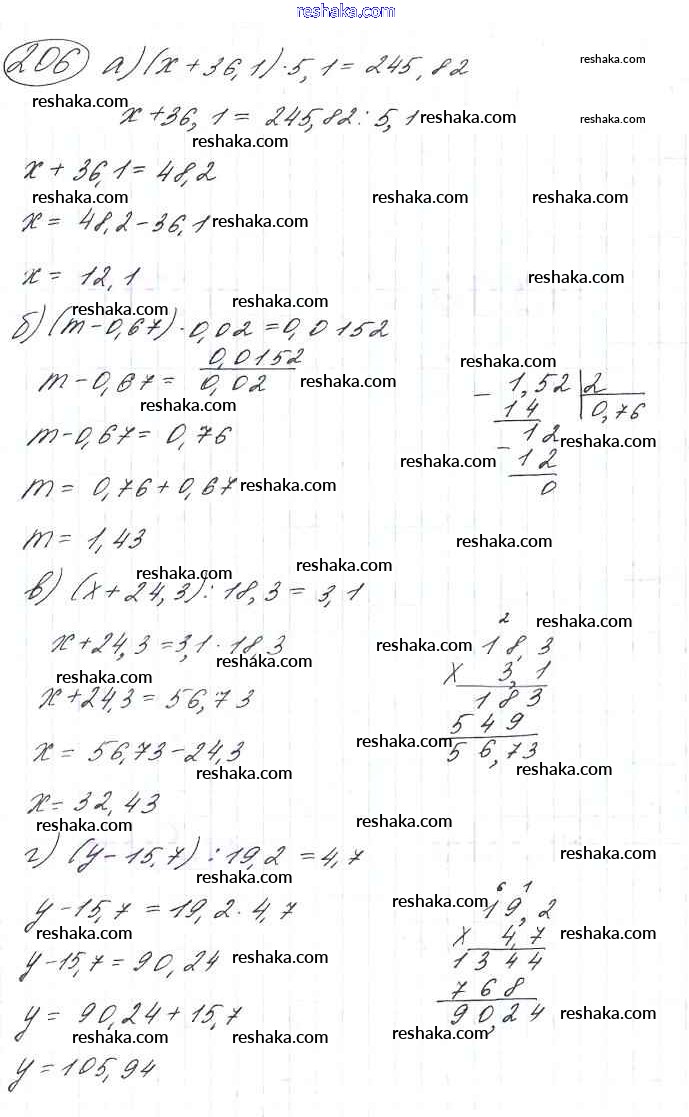 reshaka.com
206 а) (x + 36,1) · 5,1 = 245,82 reshaka.com
reshaka.com
x + 36,1 = 245,82 : 5,1 reshaka.com reshaka.com
reshaka.com
x + 36,1 = 48,2
reshaka.com reshaka.com reshaka.com
x = 48,2 - 36,1 reshaka.com
x = 12,1 reshaka.com
reshaka.com reshaka.com
б) (m - 0,67) · 0,02 = 0,0152
m - 0,67 = 0,0152 / 0,02 reshaka.com
reshaka.com
reshaka.com
m - 0,67 = 0,76
m = 0,76 + 0,67 reshaka.com
m = 1,43
- 1,52 | 2
14 | 0,76
- 12 reshaka.com
reshaka.com 12
0
reshaka.com
reshaka.com reshaka.com
в) (x + 24,3) : 18,3 = 3,1
x + 24,3 = 3,1 · 18,3
reshaka.com
reshaka.com
x + 24,3 = 56,73
x = 56,73 - 24,3
reshaka.com
x = 32,43
reshaka.com
2 reshaka.com
reshaka.com 18,3
x 3,1
183
549
reshaka.com
56,73
reshaka.com
reshaka.com
г) (y - 15,7) : 19,2 = 4,7 reshaka.com
reshaka.com
y - 15,7 = 19,2 · 4,7
reshaka.com
y - 15,7 = 90,24 reshaka.com
y = 90,24 + 15,7
reshaka.com reshaka.com
y = 105,94
6 1
reshaka.com 19,2
x 4,7 reshaka.com
1344
768
90,24 reshaka.com
reshaka.com